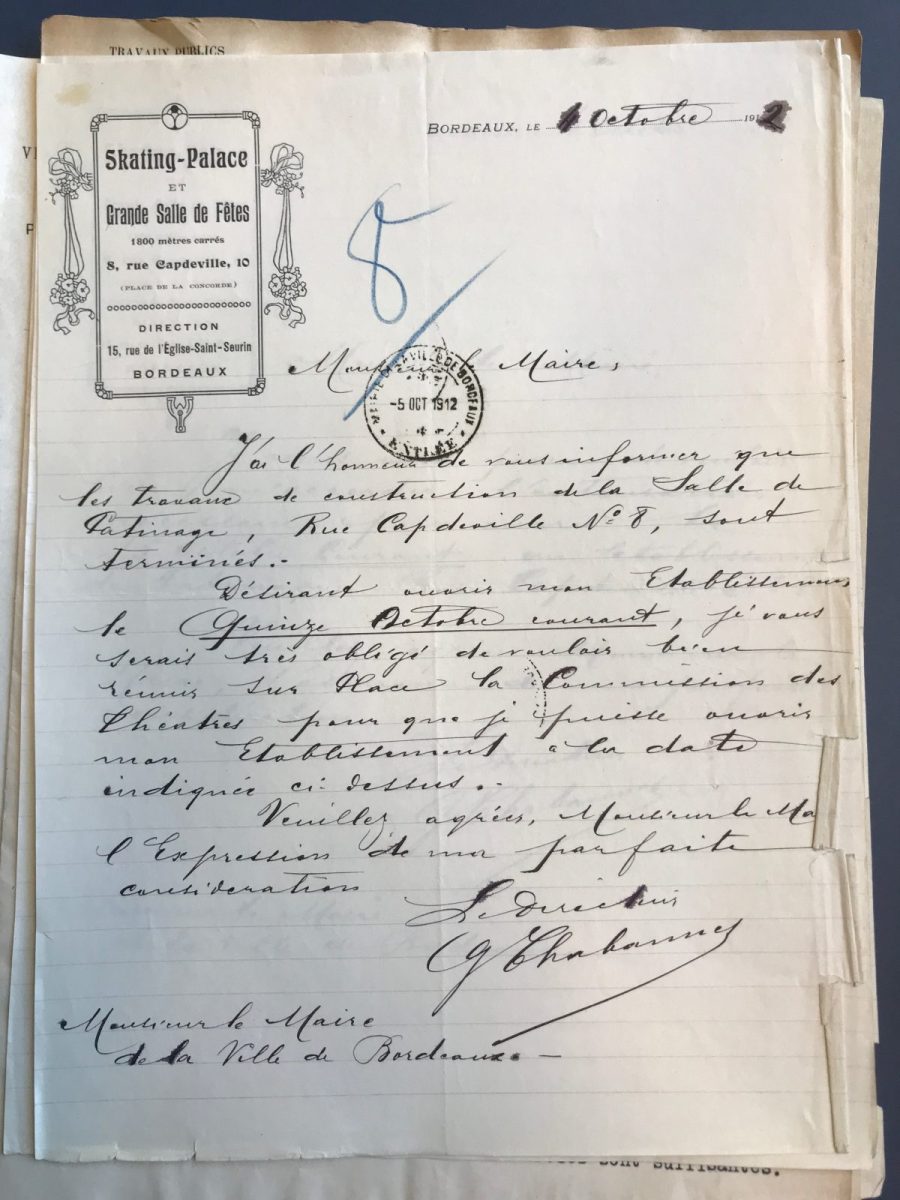 TRAVAUX PUBLICS
Skating-Palace
ET
Grande Salle de Fêtes
1800 mètres carrés
8, rue Capdeville, 10
(PLACE DE LA CONCORDE)
DIRECTION
15, rue de l'Église-Saint-Seurin
BORDEAUX
BORDEAUX, LE 4 Octobre 1912
8
Monsieur le Maire,
MAIRIE DE LA VILLE DE BORDEAUX
-5 OCT 1912
ENTRÉE
J'ai l'honneur de vous informer que
les travaux de construction de la Salle de
Patinage, Rue Capdeville No 8, sont
terminés.-
Désirant ouvrir mon Etablissement
le Quinze Octobre courant, je vous
serais très obligé de vouloir bien
réunir sur Place la Commission des
Théâtres pour que je puisse ouvrir
mon Etablissement à la date
indiquée ci-dessus.-
Veuillez agréer, Monsieur le Ma
l'Expression de ma parfaite
consideration
Le Directeur
G Chabannes
Monsieur le Maire
de la Ville de Bordeaux.-
sont suffisantes.